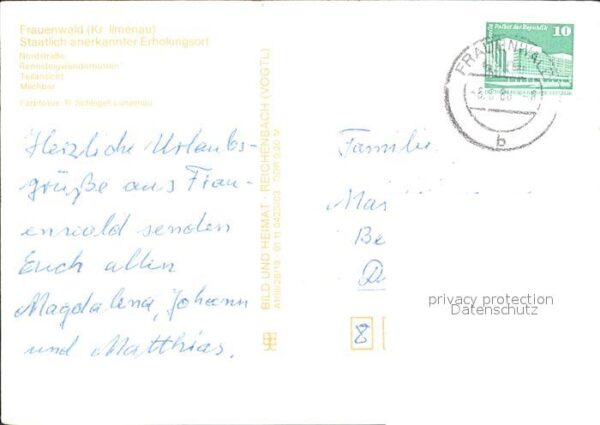 Frauenwald (Kr. Ilmenau)
Staatlich anerkannter Erholungsort
Nordstraße
Rennsteigwanderhütten
Teilansicht
Milchbar
Farbfotos: R. Schlegel, Lunzenau
Herzliche Urlaubs-
grüße aus Frau-
enwald senden
Euch allen
Magdalena, Johann
und Matthias.
BILD UND HEIMAT · REICHENBACH (VOGTL)
DDR 0,20 M
Palast der Republik
10
FRAUENWALD
b
Familie
Mar
Be
privacy protection
Datenschutz
8